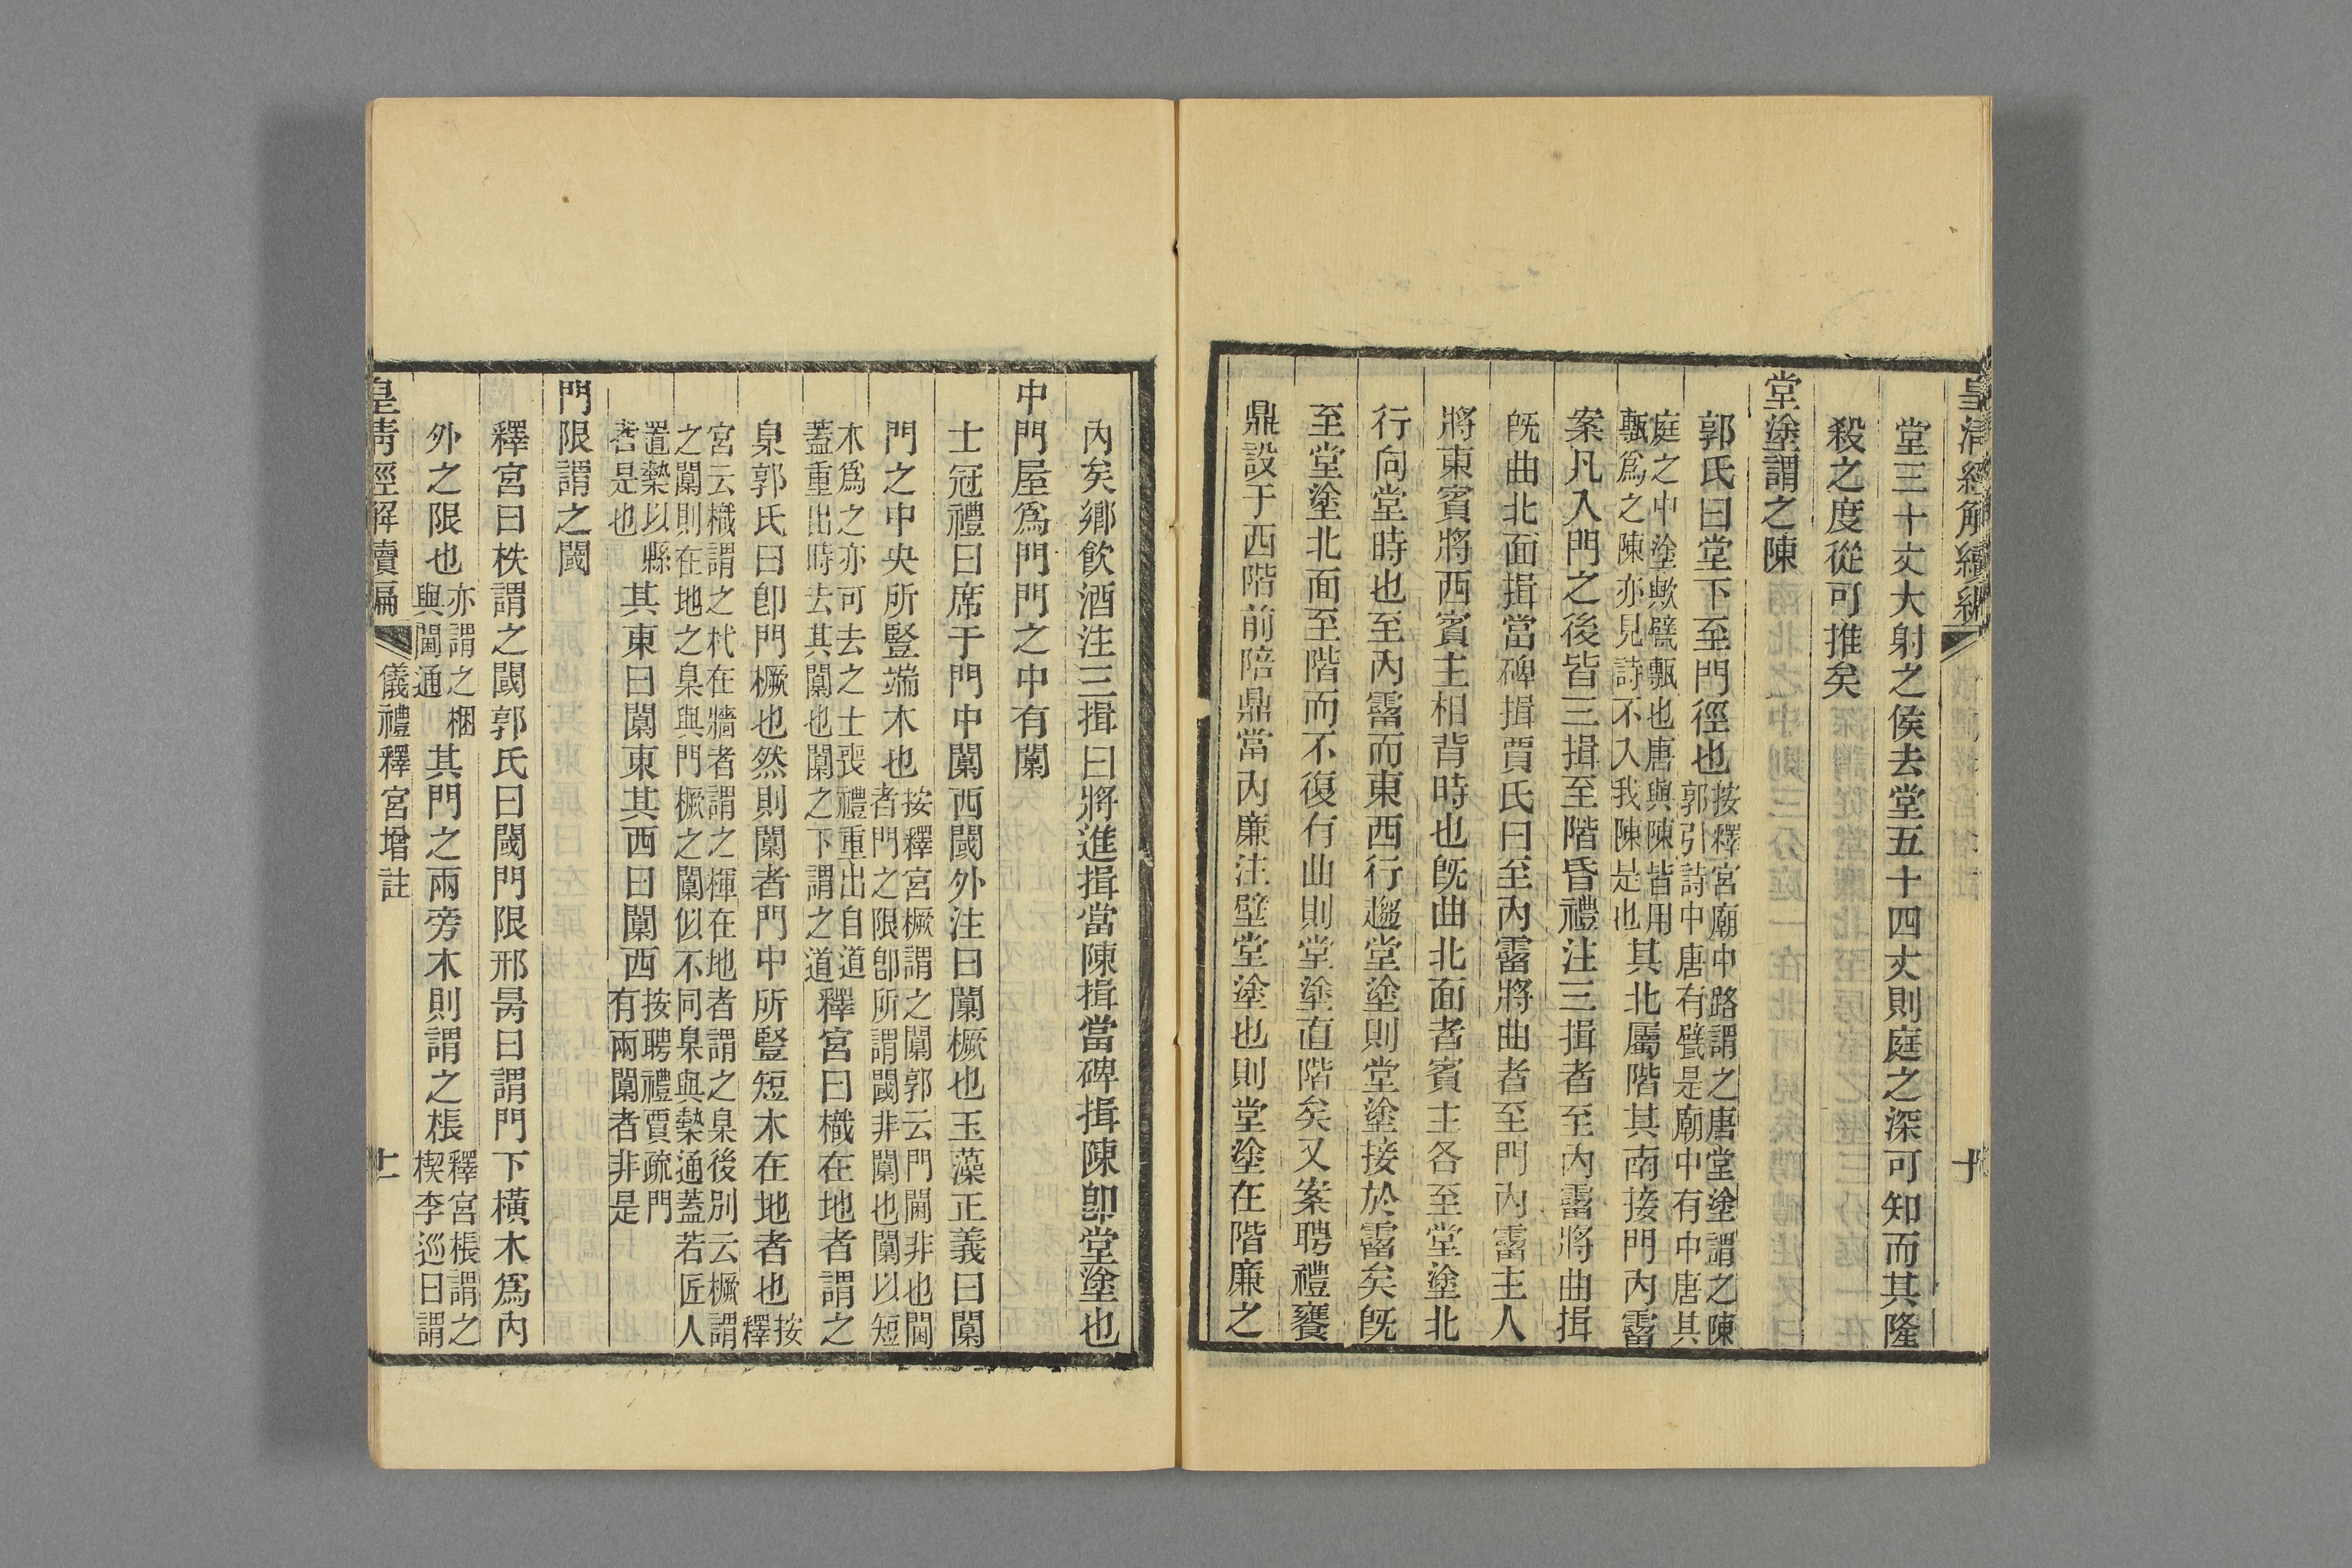 皇清經解續編
十
堂三十丈大射之侯去堂五十四丈則庭之深可知而其隆
殺之度從可推矣
堂塗謂之陳
郭氏曰堂下至門徑也按釋宮廟中路謂之唐堂塗謂之陳郭引詩中唐有甓是廟中有中唐其
庭之中塗歟甓甎也唐與陳皆用甎爲之陳亦見詩不入我陳是也其北屬階其南接門內霤
案凡入門之後皆三揖至階昏禮注三揖者至內霤將曲揖
旣曲北面揖當碑揖賈氏曰至內霤將曲者至門內霤主人
將東賓將西賓主相背時也旣曲北面者賓主各至堂塗北
行向堂時也至內霤而東西行趨堂塗則堂塗接於霤矣旣
至堂塗北面至階而不復有曲則堂塗直階矣又案聘禮饔
鼎設于西階前陪鼎當內廉注辟堂塗也則堂塗在階廉之
內矣鄉飲酒注三揖曰將進揖當陳揖當碑揖陳卽堂塗也
中門屋爲門門之中有闑
士冠禮曰席于門中闑西閾外注曰闑橛也玉藻正義曰闑
門之中央所豎端木也按釋宮橛謂之闑郭云門閫非也閫者門之限卽所謂閾非闑也闑以短
木爲之亦可去之士喪禮重出自道蓋重出時去其闑也闑之下謂之道釋宮曰樴在地者謂之
臬郭氏曰卽門橛也然則闑者門中所豎短木在地者也按釋
宮云樴謂之杙在牆者謂之楎在地者謂之臬後別云橛謂之闑則在地之臬與門橛之闑似不同臬與槷通蓋若匠人
置槷以縣者是也其東曰闑東其西曰闑西按聘禮賈疏門有兩闑者非是
門限謂之閾
釋宮曰柣謂之閾郭氏曰閾門限邢昺曰謂門下橫木爲內
外之限也亦謂之梱與閫通其門之兩旁木則謂之棖釋宮棖謂之楔李巡曰謂
皇清經解續編
儀禮釋宮增註
十一